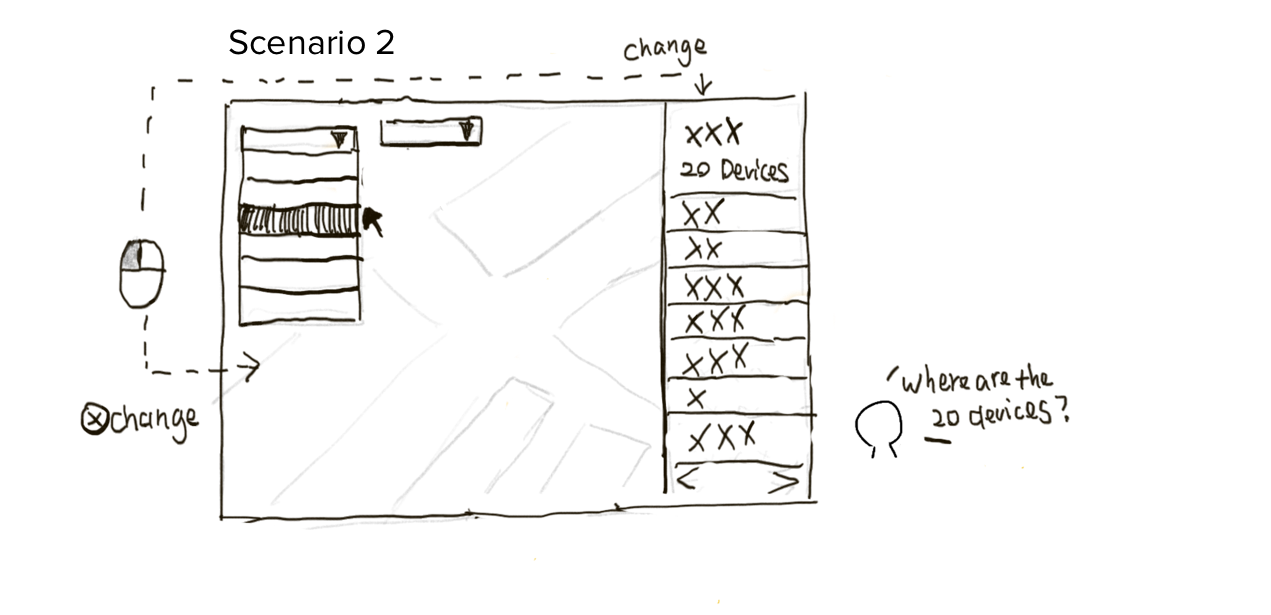 Scenario 2
change
XXX
20 Devices
XX
XX
XXX
XXX
XXX
X
XXX
< >
ⓧchange
"where are the
20 devices?